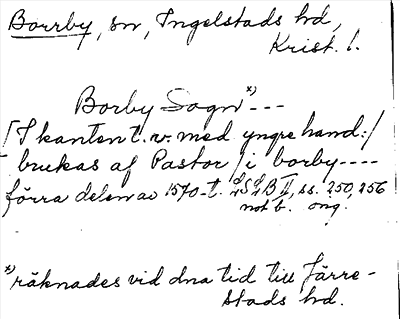 Borrby, sn, Ingelstads hd,
Krist. l.
Borby Sogn *) ---
[I kanten t. v. med yngre hand:/
brukas af Pastor / i borby ----
förra delen av 1570-t. SB II, ss. 250, 256
not b. orig.
*) räknades vid dna tid till Järre-
stads hd.